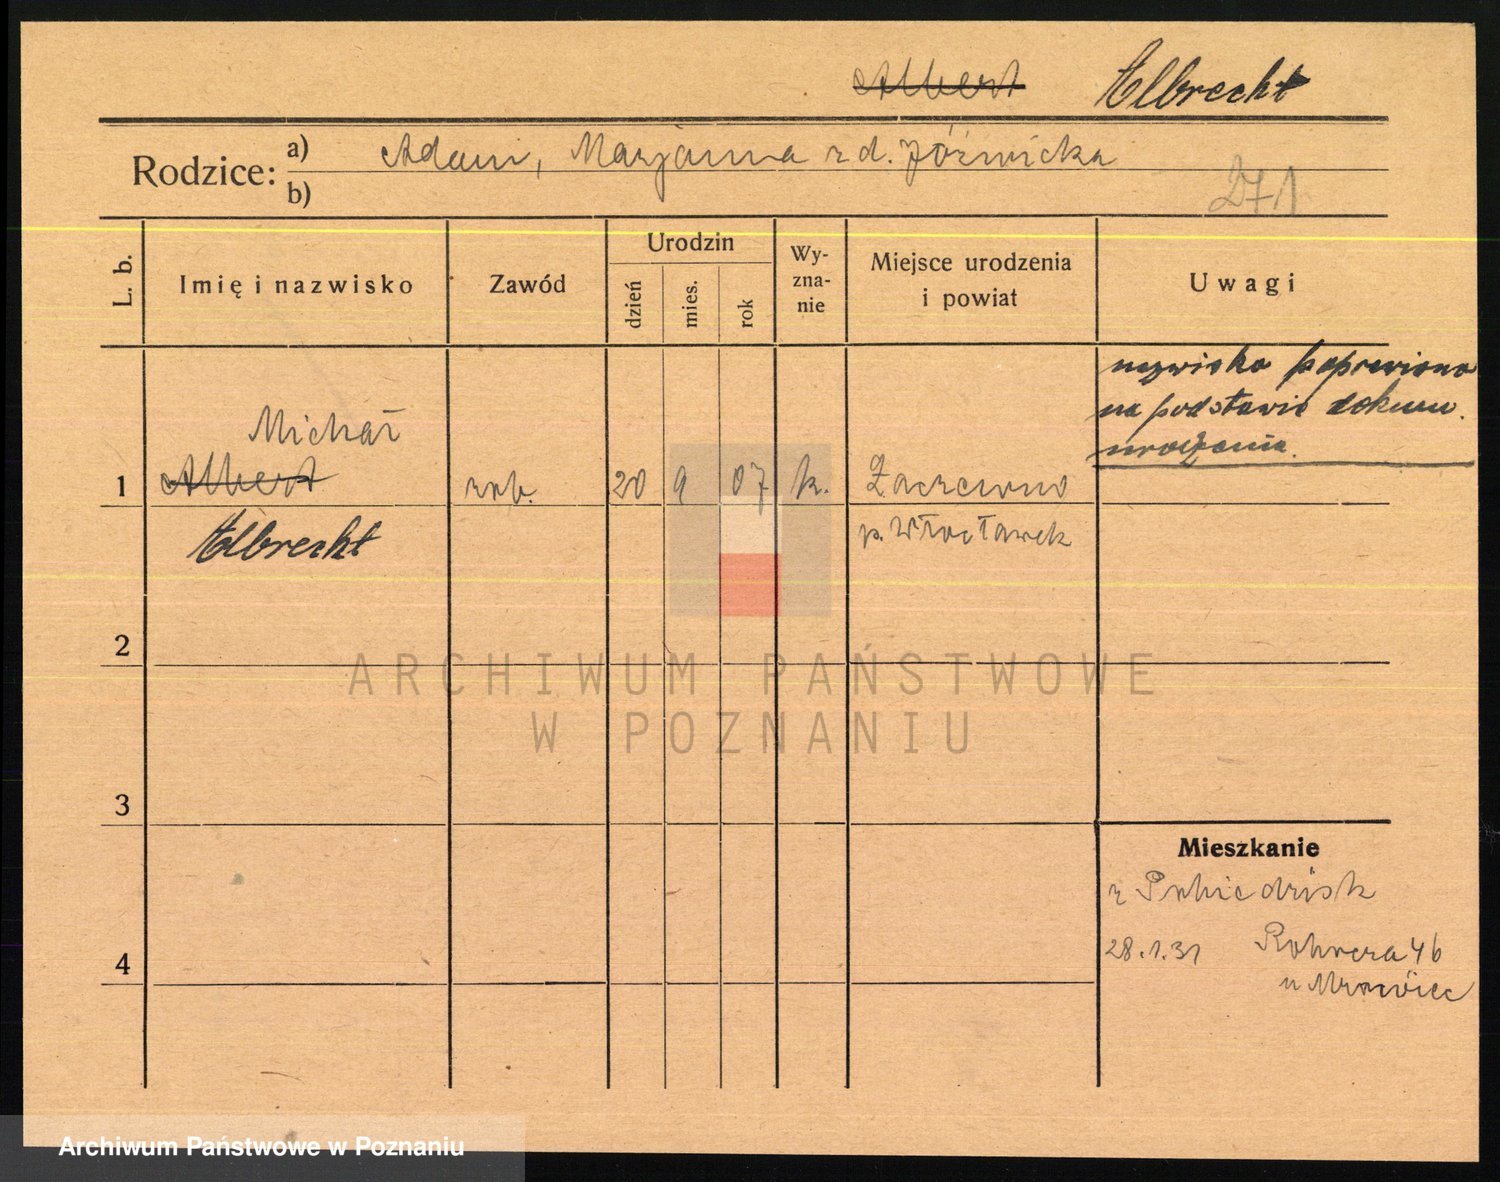 Albert Elbrecht
Rodzice: a) Adam, Marjanna z d. Jóźwicka
b)
271
L. b. Imię i nazwisko Zawód Urodzin dzień mies. rok Wyznanie Miejsce urodzenia i powiat Uwagi
nazwisko poprawiono
na podstawie dokum.
urodzenia.
Michał
1 Albert rob. 20 9 07 k.
Elbrecht p. Włocławek
2
3
4
Mieszkanie
z
28.1.31 46
u
ARCHIWUM PAŃSTWOWE
W POZNANIU
Archiwum Państwowe w Poznaniu